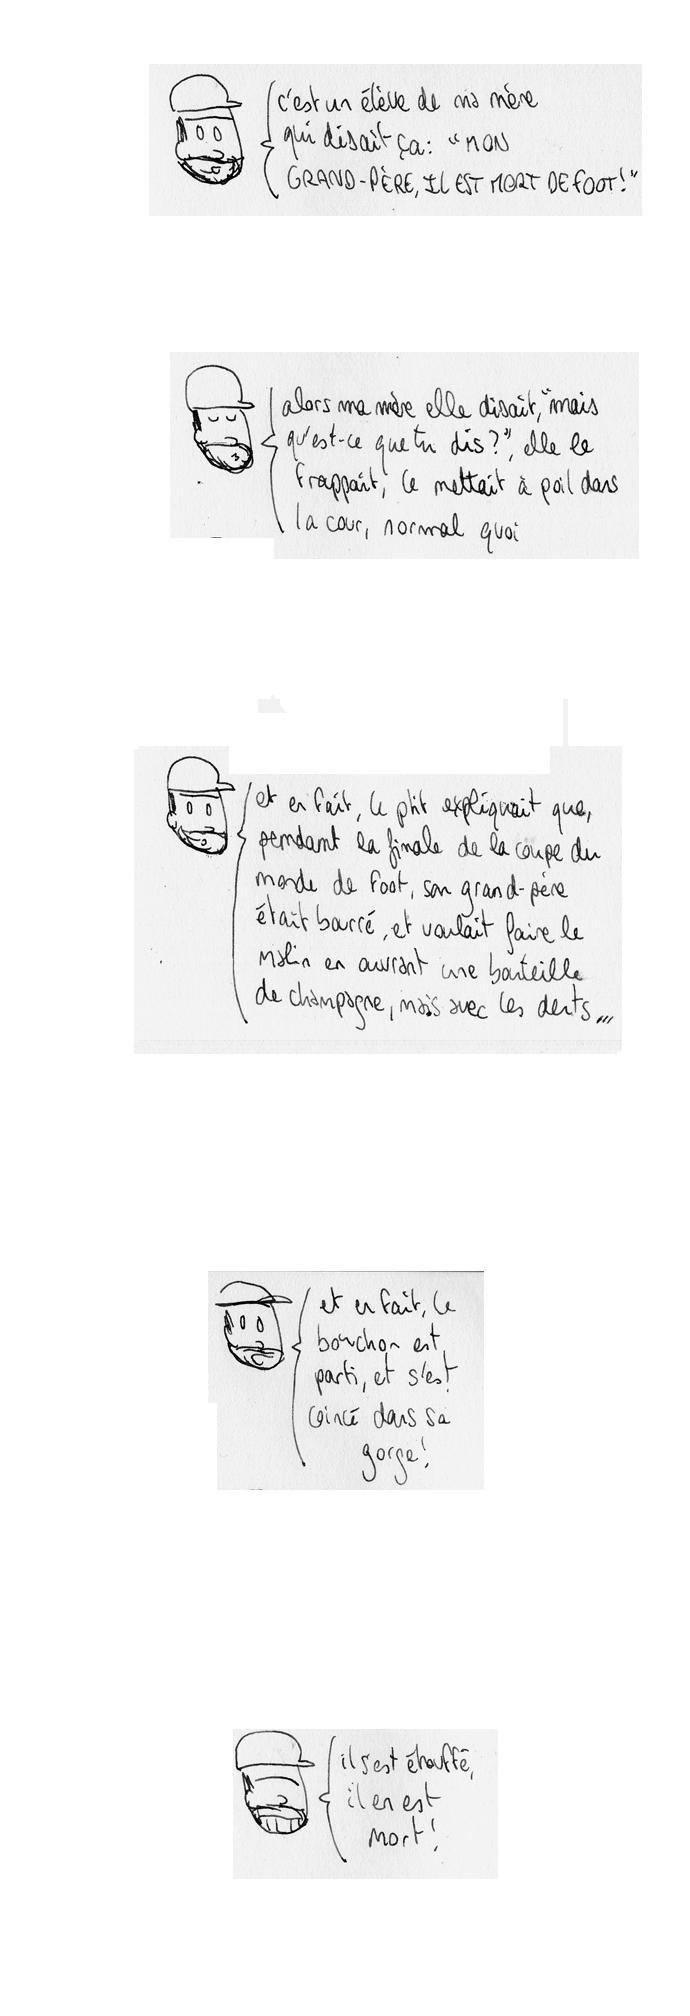 c'est un élève de ma mère
qui disait ça: "MON
GRAND-PÈRE, IL EST MORT DE FOOT!"
alors ma mère elle disait, "mais
qu'est-ce que tu dis?", elle le
frappait, le mettait à poil dans
la cour, normal quoi
et en fait, le ptit expliquait que,
pendant la finale de la coupe du
monde de foot, son grand-père
était bourré, et voulait faire le
malin en ouvrant une bouteille
de champagne, mais avec les dents...
et en fait, le
bouchon est
parti, et s'est
coincé dans sa
gorge!
il s'est étouffé,
il en est
mort!